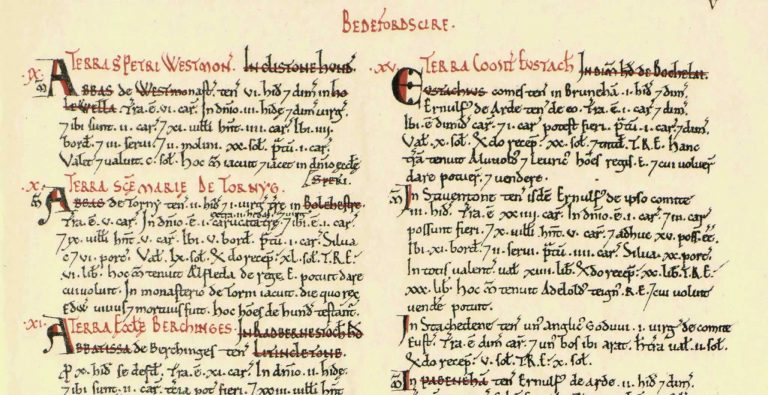 V
BEDEFORDSCIRE.
.IX. TERRA S PETRI WESTMON. IN CLISTONE HVND.
M̃ ABBAS de Westmonast̃ ten̄ .VI. hid̄ ⁊ dim̄ in HO
LEWELLA. Tr̄a .ē. VI. car̄. In dn̄io .III. hidę ⁊ dim̄ uirg̃
⁊ ibi sunt .II. car̄. ⁊ XI. uilłi hn̄t .IIII. car̄. Ibi .III.
bord̄. ⁊ III. serui. ⁊ II. molini. XX. sol. p̃tū .I. car̄.
Valet ⁊ ualuit .C. sol. Hoc m̃ iacuit ⁊ iacet in dn̄io æccłę
S PETRI.
.X. TERRA SC̄E MARIE DE TORNYG.
M̃ ABBAS de Torny ten̄ .II. hid̄ ⁊ I. uirg̃ tr̄e in BOLEHESTRE.
Tr̄a .ē. V. car̄. In dn̄io .ē. I. carucata tr̄e. ⁊ ibi .ē. I. car̄.
⁊ IX. uilłi hn̄t .V. car̄. Ibi .V. bord̄. p̃tū .I. car̄. Silua
C. ⁊ VI. porc̄. Val̄ .LX. sol. X do recep̃. XL. sol. T.R.E.
VI. lib̄. Hoc m̃ tenuit Ælfleda de rege .E. potuit dare
cui uoluit. In monasterio de Torni iacuit. die quo rex
Edw̃ uiuus ⁊ mortuus fuit. Hoc hōes de hund̄ testant̃.
.XI. TERRA ECCLĘ BERCHINGES. IN RADBERNESTOCH HD̄
M̃ ABBATISSA de Berchinges ten̄ LITINCLETONE.
⁊ ibi sunt .II. car̄. tc̃ia pot̃ fieri. ⁊ XXIII. uilłi hn̄t
.XV. TERRA COMIT̃ EUSTACH̃. IN DIM̄ HD̄ DE BOCHELAI.
EVSTACHIVS comes ten̄ in Bruneh̄ā .I. hid̄ ⁊ dim̄.
Ernulf̃ de Arde ten̄ de eo. Tr̄a .ē. I. car̄ ⁊ dim̄.
Ibi .ē. dimid̄ car̄. ⁊ I. car̄ potest fieri. p̃tū .I. car̄ ⁊ dim̄.
Val̄ .X. sol. X do recep̃ .XX. sol. ⁊ totid̄. T.R.E. Hanc
tr̄a tenuit Aluuold ⁊ Leuric̃ hōes regis .E. ⁊ cui uoluer̄
dare potuer̄ ⁊ vendere.
M̃ In Stauentone ten̄ isdē Ernulf̃ de ipso comite
.III. hid̄. Tr̄a .ē. XXIIII. car̄. In dn̄io .ē. I. car̄. ⁊ III. car̄
possunt fieri. ⁊ XV. uilłi hn̄t .V. car̄. ⁊ adhuc XV. poss̃ .ēē.
Ibi .XI. bord̄. ⁊ II. serui. p̃tū .IIII. car̄. Silua .XX. porc̄.
In totis ualent̃ ual̄ .XVIII. lib̄. X do recep̃ .XX. lib̄. T.R.E.
XXX. lib̄. Hoc m̃ tenuit Adelold teign̄ .R.E. ⁊ cui uoluit
vendē potuit.
In Stachedene ten̄ un̄ angl̃ic̃ Godmu .I. uirg̃ de comite
Eust̃. Tr̄a .ē. dim̄ car̄. ⁊ un̄ bos ibi arat. h̃ tr̄a ual̄ .V. sol.
X do recep̃ .V. sol. T.R.E. X. sol.
M̃ In PADENEH̄Ā ten̄ Ernulf̃ de Arde .II. hid̄ ⁊ dim̄.